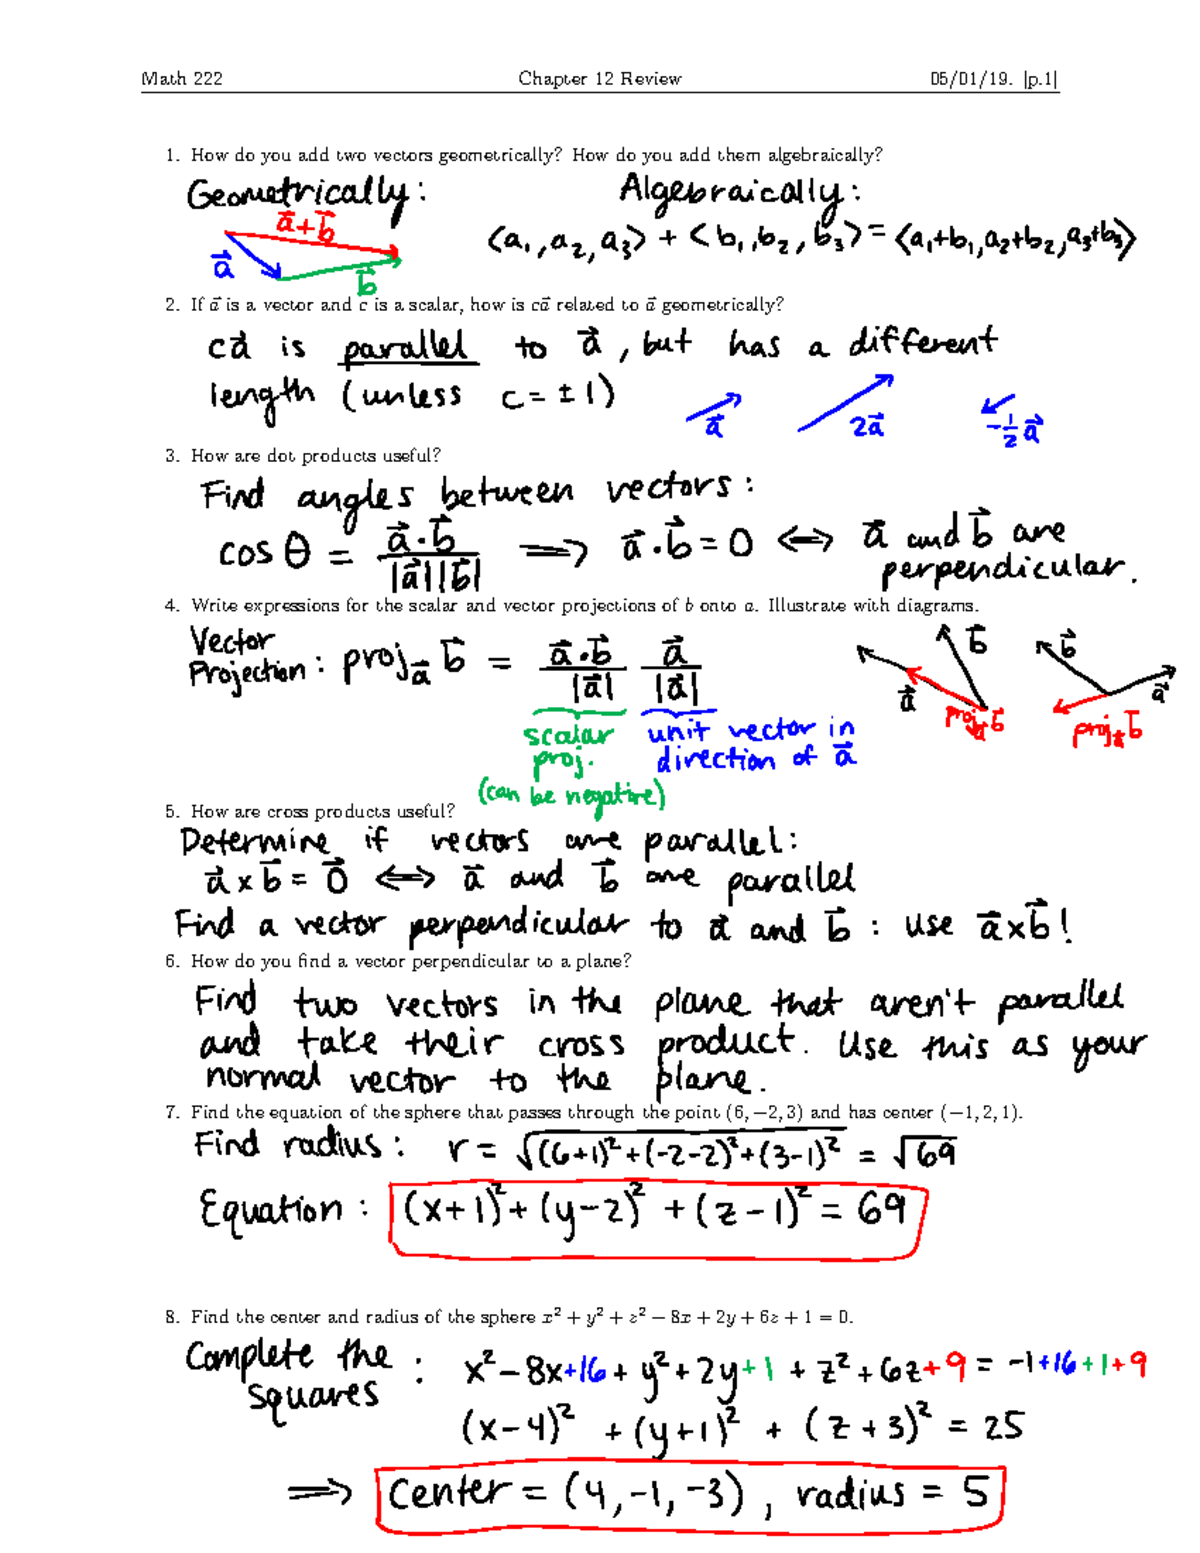 Math 222 Chapter 12 Review 05/01/19. |p.1|
1. How do you add two vectors geometrically? How do you add them algebraically?
Geometrically: Algebraically:
a⃗+b⃗
⟨a₁,a₂,a₃⟩ + ⟨b₁,b₂,b₃⟩ = ⟨a₁+b₁,a₂+b₂,a₃+b₃⟩
a⃗
b⃗
2. If a⃗ is a vector and c is a scalar, how is ca⃗ related to a⃗ geometrically?
ca⃗ is parallel to a⃗, but has a different
length (unless c = ±1)
a⃗ 2a⃗ -½a⃗
3. How are dot products useful?
Find angles between vectors:
cos θ = a⃗·b⃗ / |a⃗||b⃗| ⟹ a⃗·b⃗ = 0 ⟺ a⃗ and b⃗ are
perpendicular.
4. Write expressions for the scalar and vector projections of b onto a. Illustrate with diagrams.
Vector
Projection: proj_a⃗ b⃗ = a⃗·b⃗/|a⃗| a⃗/|a⃗|
b⃗ b⃗
a⃗ a⃗
proj_a⃗ b⃗ proj_a⃗ b⃗
scalar unit vector in
proj. direction of a⃗
(can be negative)
5. How are cross products useful?
Determine if vectors are parallel:
a⃗×b⃗ = 0⃗ ⟺ a⃗ and b⃗ are parallel
Find a vector perpendicular to a⃗ and b⃗: use a⃗×b⃗!
6. How do you find a vector perpendicular to a plane?
Find two vectors in the plane that aren't parallel
and take their cross product. Use this as your
normal vector to the plane.
7. Find the equation of the sphere that passes through the point (6, −2, 3) and has center (−1, 2, 1).
Find radius: r = √((6+1)²+(-2-2)²+(3-1)²) = √69
Equation: (x+1)²+(y-2)²+(z-1)² = 69
8. Find the center and radius of the sphere x² + y² + z² − 8x + 2y + 6z + 1 = 0.
Complete the squares: x²-8x+16 + y²+2y+1 + z²+6z+9 = -1+16+1+9
(x-4)² + (y+1)² + (z+3)² = 25
⟹ center = (4,-1,-3), radius = 5